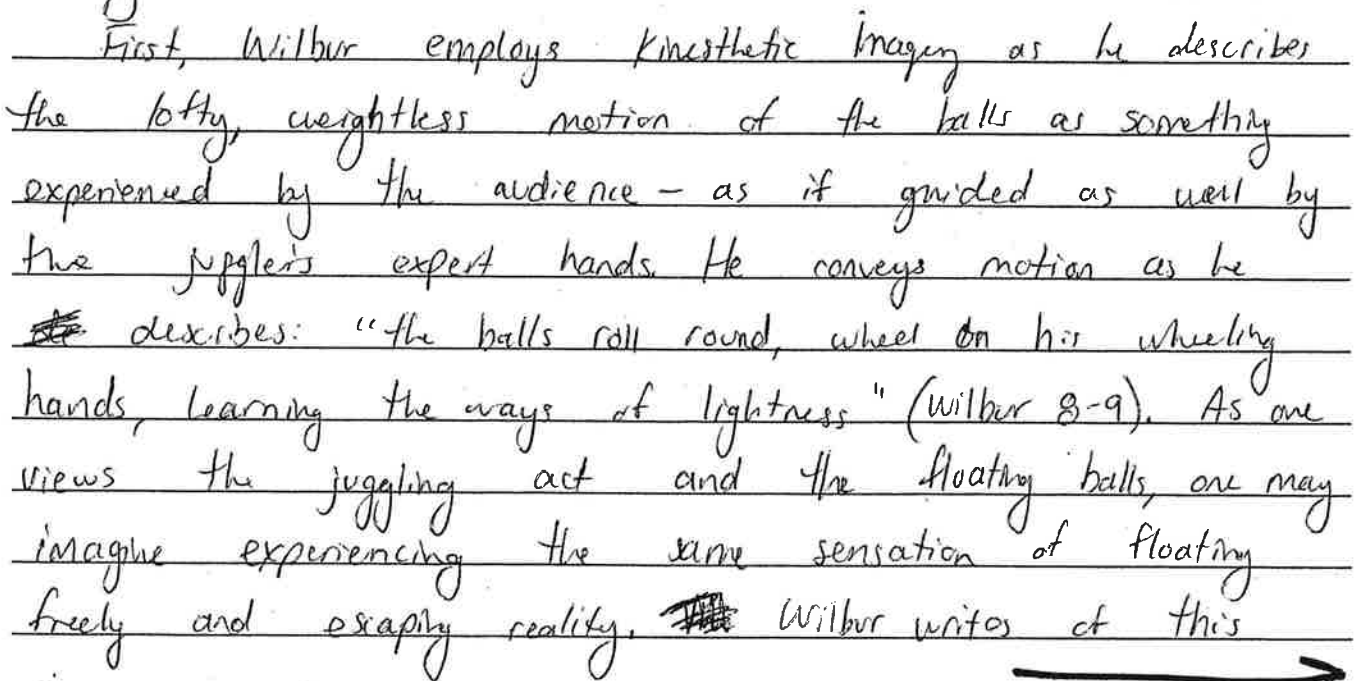 First, Wilbur employs kinesthetic imagery as he describes
the lofty, weightless motion of the balls as something
experienced by the audience - as if guided as well by
the juggler's expert hands. He conveys motion as he
describes: "the balls roll round, wheel on his wheeling
hands, learning the ways of lightness" (Wilbur 8-9). As one
views the juggling act and the floating balls, one may
imagine experiencing the same sensation of floating
freely and escaping reality. Wilbur writes of this